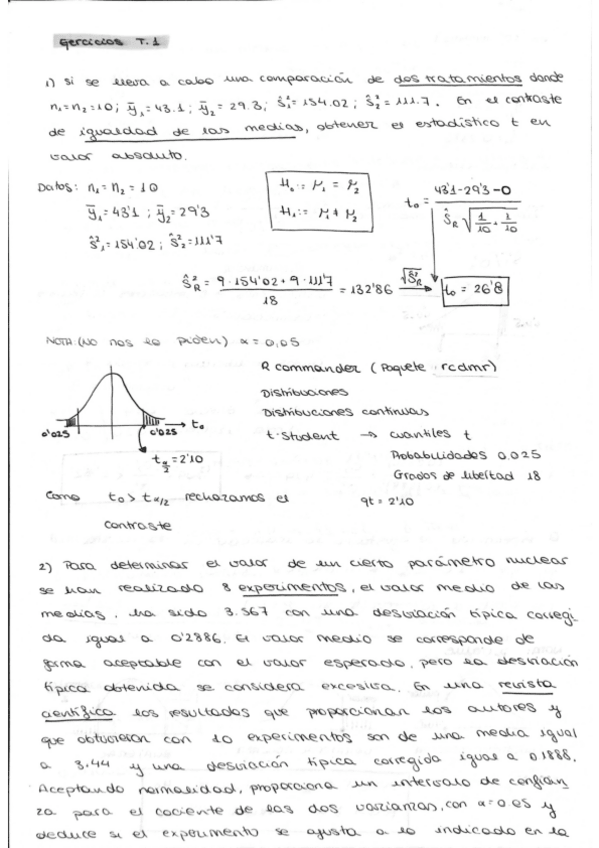 Ejercicios T.1
1) Si se lleva a cabo una comparación de dos tratamientos donde
n₁=n₂=10; ȳ₁=43.1; ȳ₂=29.3; Ŝ₁²=154.02; Ŝ₂²=111.7. En el contraste
de igualdad de las medias, obtener el estadístico t en
valor absoluto.
Datos: n₁=n₂=10
ȳ₁=43'1; ȳ₂=29'3
Ŝ₁²=154'02; Ŝ₂²=111'7
H₀:= μ₁=μ₂
H₁:= μ₁≠μ₂
t₀= (43'1-29'3-0) / (Ŝ_R √(1/10+1/10))
Ŝ_R² = (9·154'02+9·111'7) / 18 = 132'86 √Ŝ_R² → t₀=26'8
NOTA (NO nos lo piden) α=0,05
0'025 0'025 → t₀
t_α/2=2'10
R commander (Paquete rcdmr)
Distribuciones
Distribuciones continuas
t-Student → cuantiles t
Probabilidades 0.025
Grados de libertad 18
qt=2'10
Como t₀>t_α/2 rechazamos el
contraste
2) Para determinar el valor de un cierto parámetro nuclear
se han realizado 8 experimentos, el valor medio de las
medias, ha sido 3.567 con una desviación típica corregi-
da igual a 0'2886. El valor medio se corresponde de
forma aceptable con el valor esperado, pero la desviación
típica obtenida se considera excesiva. En una revista
científica los resultados que proporcionan los autores y
que obtuvieron con 10 experimentos son de una media igual
a 3.44 y una desviación típica corregida igual a 0.1888.
Aceptando normalidad, proporciona un intervalo de confian-
za para el cociente de las dos varianzas, con α=0.05 y
deduce si el experimento se ajusta a lo indicado en la